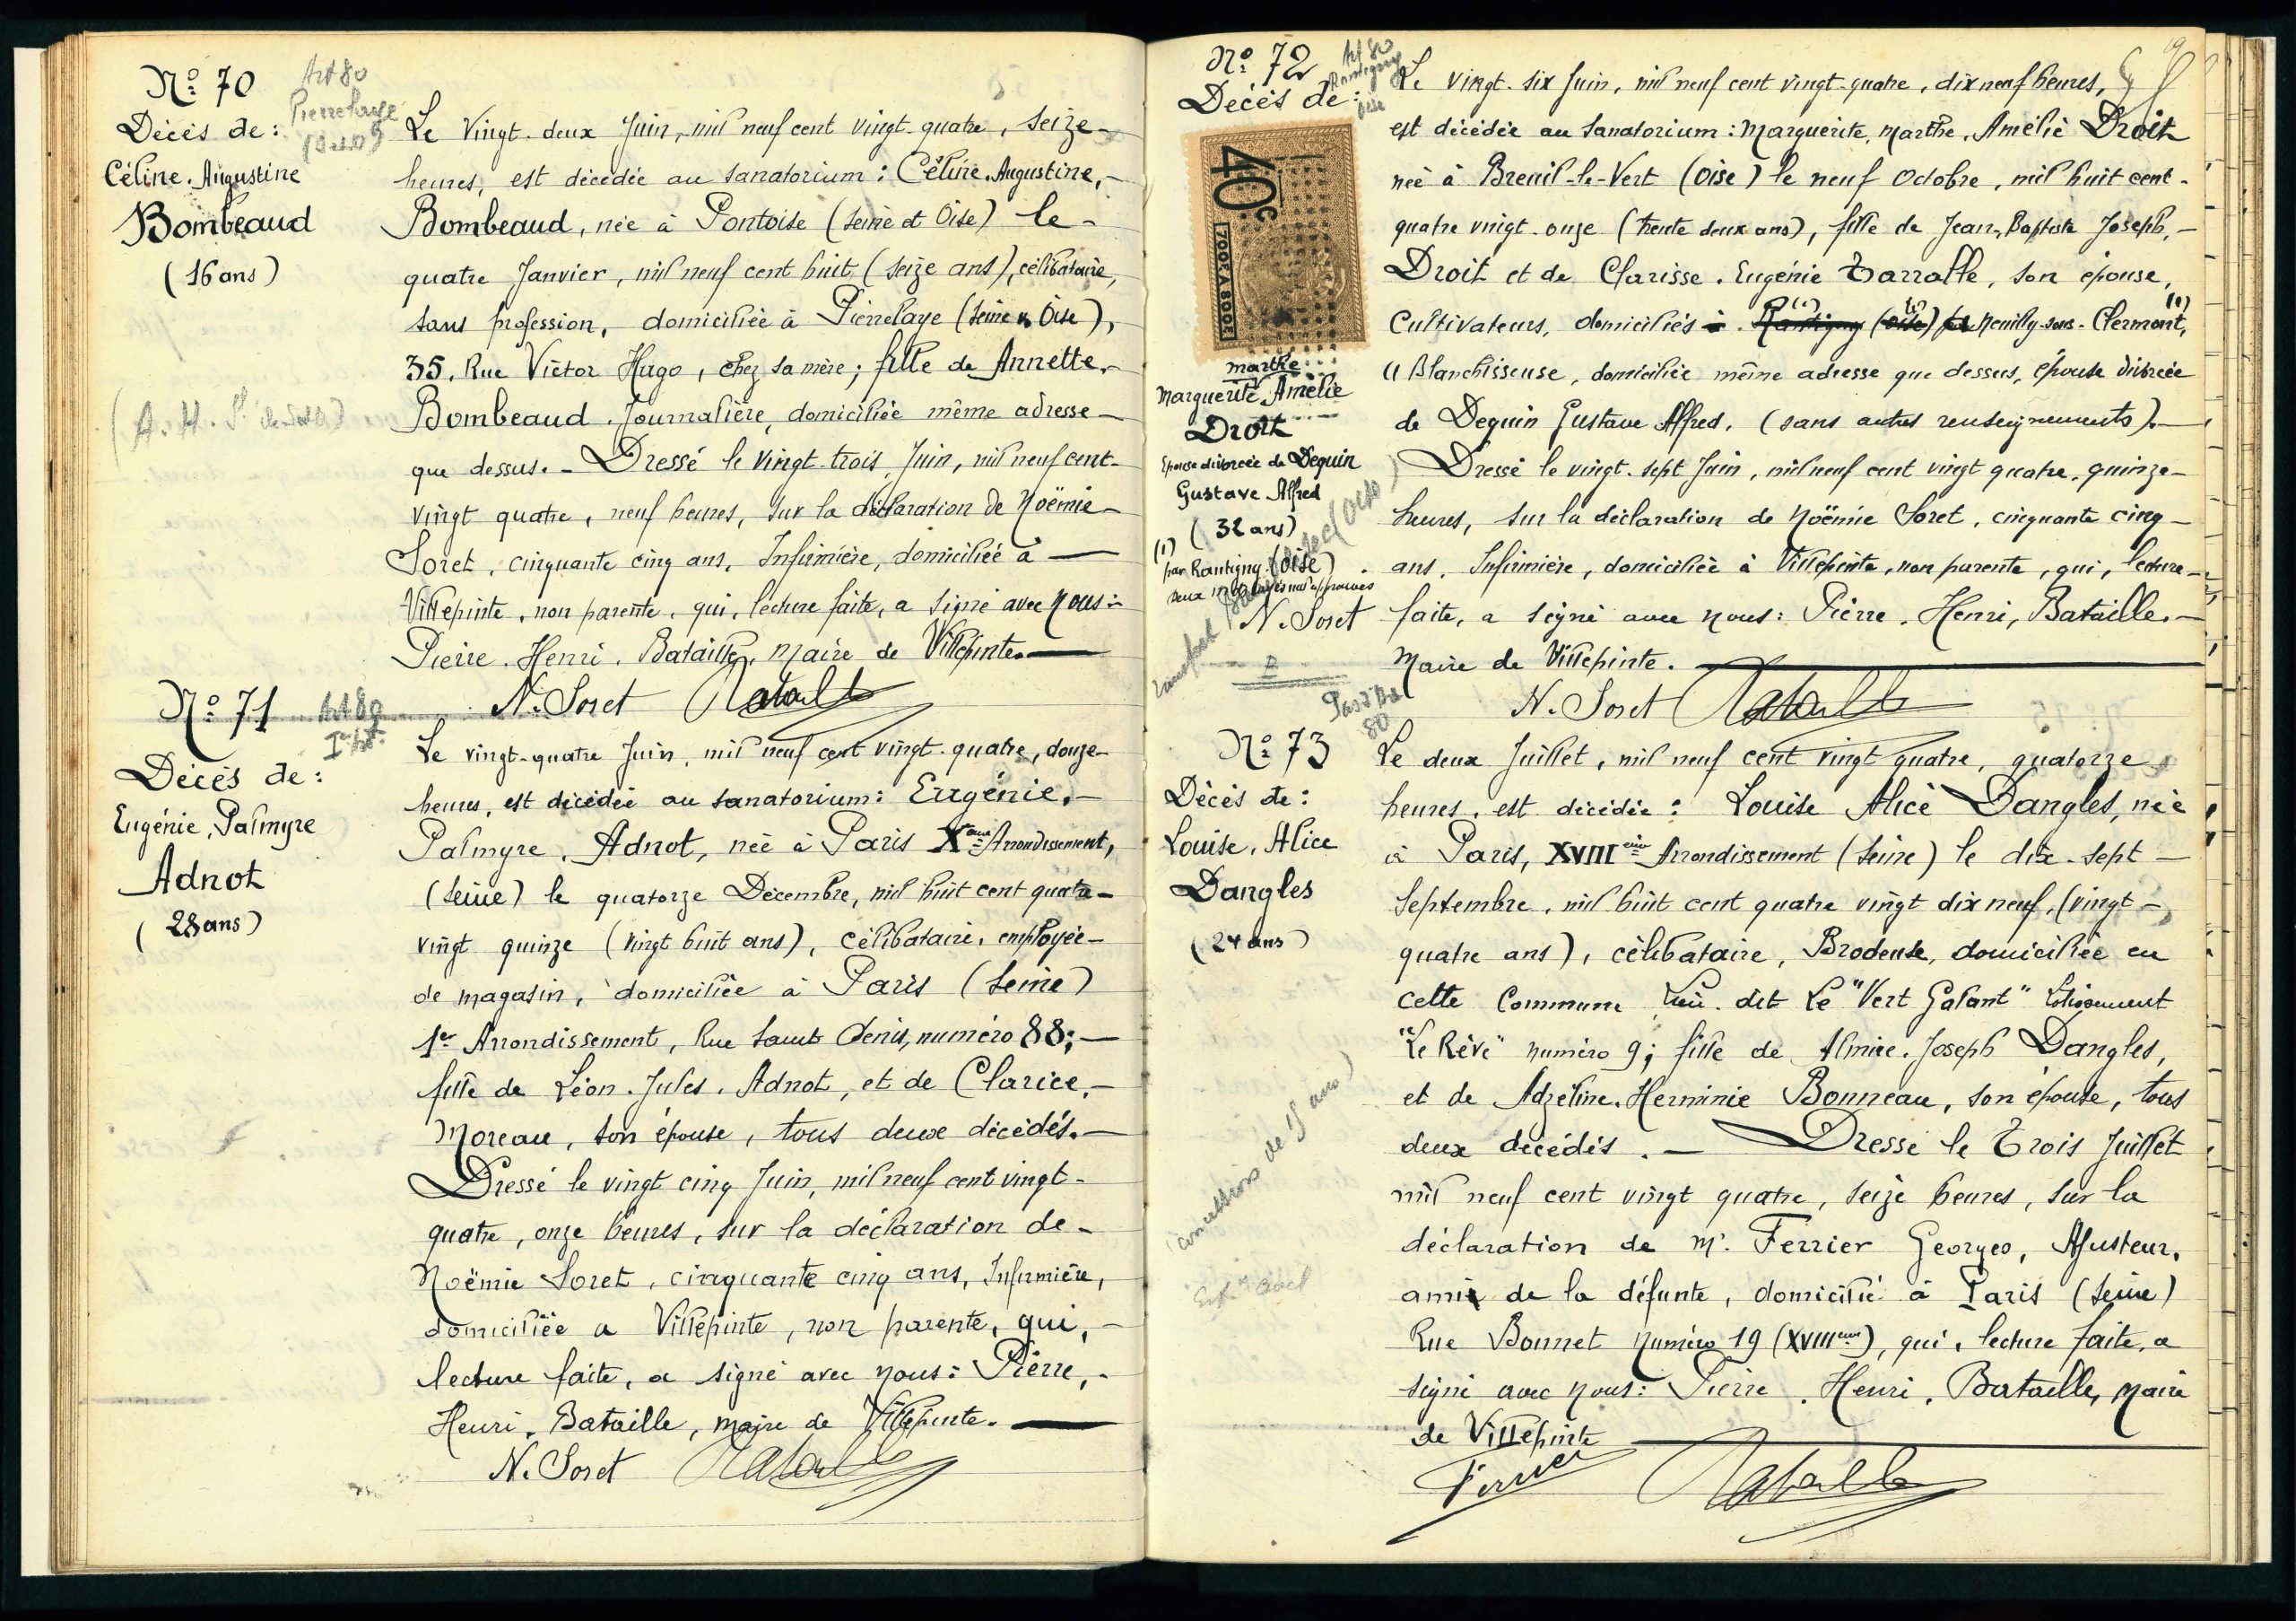 N° 70
Art 80
Pierrelaye
Décès de :
Céline. Augustine
Bombeaud
(16 ans)
Le vingt-deux Juin, mil neuf cent vingt-quatre, seize
heures, est décédée au sanatorium : Céline. Augustine,
Bombeaud, née à Pontoise (Seine et Oise) le
quatre Janvier, mil neuf cent huit, (seize ans), célibataire,
sans profession, domiciliée à Pierrelaye (Seine & Oise),
35, Rue Victor Hugo, chez sa mère ; fille de Annette.
Bombeaud. Journalière, domiciliée même adresse
que dessus. - Dressé le vingt-trois Juin, mil neuf cent-
vingt quatre, neuf heures, sur la déclaration de Noëmie
Soret, cinquante cinq ans, Infirmière, domiciliée à
Villepinte, non parente, qui, lecture faite, a signé avec Nous :
Pierre. Henri. Bataille, Maire de Villepinte.
N. Soret Bataille
N° 71
Art 80
Décès de :
Eugénie, Palmyre
Adnot
(28 ans)
Le vingt-quatre Juin, mil neuf cent vingt-quatre, douze
heures, est décédée au sanatorium : Eugénie,
Palmyre, Adnot, née à Paris Xème Arrondissement,
(Seine) le quatorze Décembre, mil huit cent quatre-
vingt quinze (vingt huit ans), célibataire, employée
de magasin, domiciliée à Paris (Seine)
1er Arrondissement, Rue Saint Denis, numéro 88 ;
fille de Léon. Jules. Adnot, et de Clarice,
Moreau, son épouse, tous deux décédés.
Dressé le vingt cinq Juin, mil neuf cent vingt-
quatre, onze heures, sur la déclaration de
Noëmie Soret, cinquante cinq ans, Infirmière,
domiciliée a Villepinte, non parente, qui,
lecture faite, a signé avec Nous : Pierre,
Henri, Bataille, Maire de Villepinte.
N. Soret Bataille
N° 72
Art 80
Rantigny
Oise
Décès de :
40c
Marthe
Marguerite, Amélie
Droit
Epouse divorcée de Dequin
Gustave Alfred
(32 ans)
(1)
par Rantigny (Oise)
N. Soret
Le vingt-six Juin, mil neuf cent vingt-quatre, dix neuf heures,
est décédée au Sanatorium : Marguerite, Marthe, Amélie Droit
née à Breuil-le-Vert (Oise) le neuf Octobre, mil huit cent-
quatre vingt-onze (trente deux ans), fille de Jean, Baptiste Joseph,
Droit et de Clarisse. Eugénie Tarratte, son épouse,
Cultivateurs, domiciliés à Rantigny (Oise) Neuilly-sous-Clermont, (1)
Blanchisseuse, domiciliée même adresse que dessus, épouse divorcée
de Dequin Gustave Alfred, (sans autres renseignements).
Dressé le vingt-sept Juin, mil neuf cent vingt quatre, quinze
heures, sur la déclaration de Noëmie Soret, cinquante cinq
ans, Infirmière, domiciliée à Villepinte, non parente, qui, lecture
faite, a signé avec nous : Pierre. Henri, Bataille,
Maire de Villepinte.
N. Soret Bataille
N° 73
80
Décès de :
Louise, Alice
Dangles
(24 ans)
Concession de 15 ans
Le deux Juillet, mil neuf cent vingt quatre, quatorze
heures, est décédée : Louise Alice Dangles, née
à Paris, XVIIIème Arrondissement (Seine) le dix-sept
Septembre, mil huit cent quatre vingt dix neuf, (vingt-
quatre ans), célibataire, Brodeuse, domiciliée en
cette Commune Lieu-dit Le "Vert Galant" Lotissement
"Le Rêve" numéro 9 ; fille de Almire. Joseph Dangles,
et de Adzeline. Herminie Bonneau, son épouse, tous
deux décédés. - Dressé le Trois Juillet
mil neuf cent vingt quatre, seize heures, sur la
déclaration de Mr. Ferrier Georges, Ajusteur,
ami de la défunte, domicilié à Paris (Seine)
Rue Bonnet Numéro 19 (XVIIIème), qui, lecture faite, a
signé avec Nous : Pierre. Henri. Bataille, Maire
de Villepinte
Ferrier Bataille